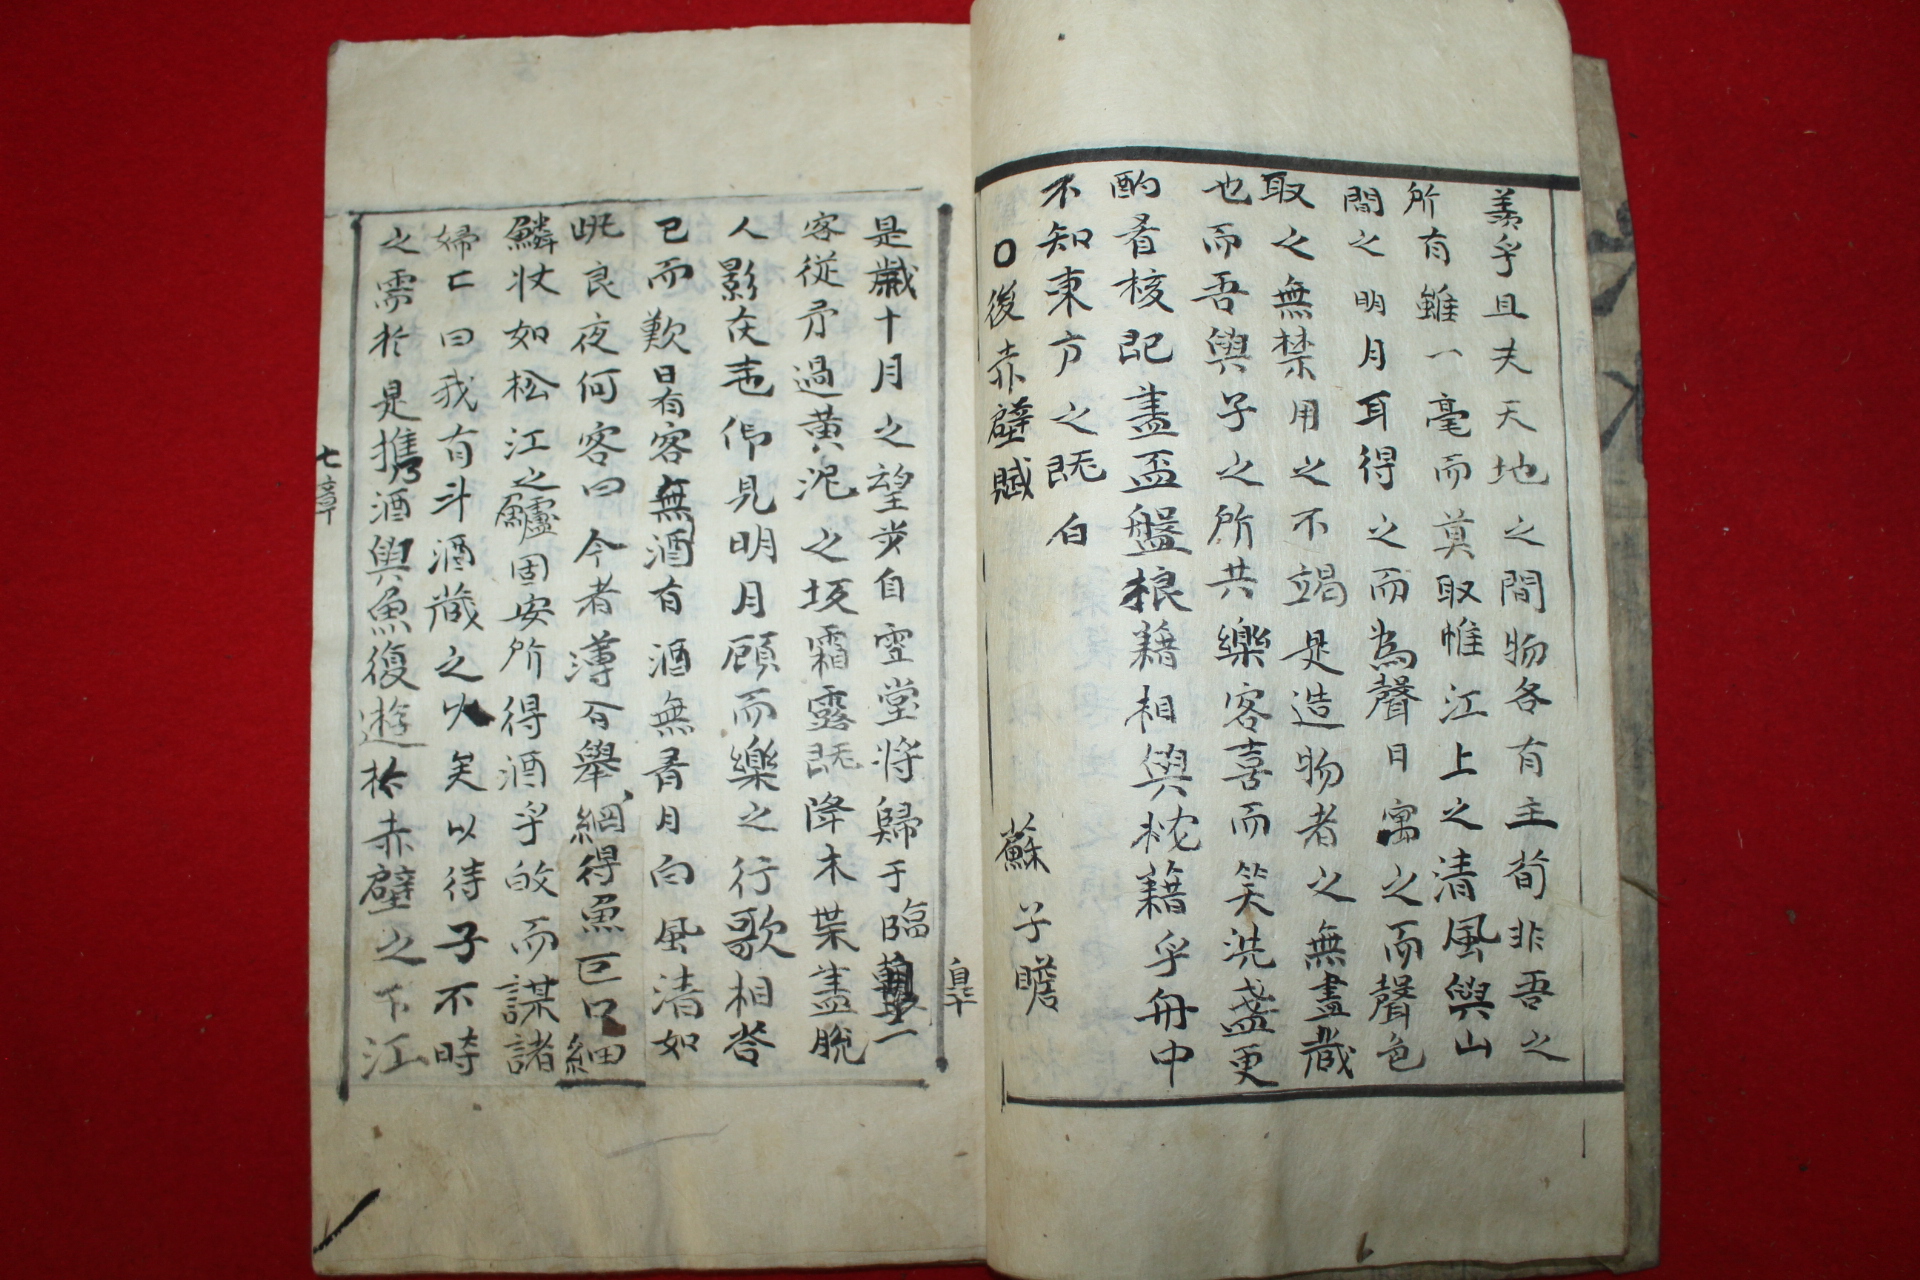 羨乎且夫天地之間物各有主苟非吾之
所有雖一毫而莫取惟江上之清風與山
間之明月耳得之而為聲目寓之而聲色
取之無禁用之不竭是造物者之無盡藏
也而吾與子之所共樂客喜而笑洗盞更
酌肴核旣盡盃盤狼藉相與枕籍乎舟中
不知東方之旣白
○後赤壁賦 蘇子瞻
是歲十月之望步自雪堂將歸于臨皐二
客從予過黃泥之坂霜露旣降木葉盡脫
人影在地仰見明月顧而樂之行歌相答
已而歎曰有客無酒有酒無肴月白風淸如
此良夜何客曰今者薄暮擧網得魚巨口細
鱗狀如松江之鱸固安所得酒乎故而謀諸
婦亡曰我有斗酒藏之久矣以待子不時
之需於是携酒與魚復遊於赤壁之下江
七章